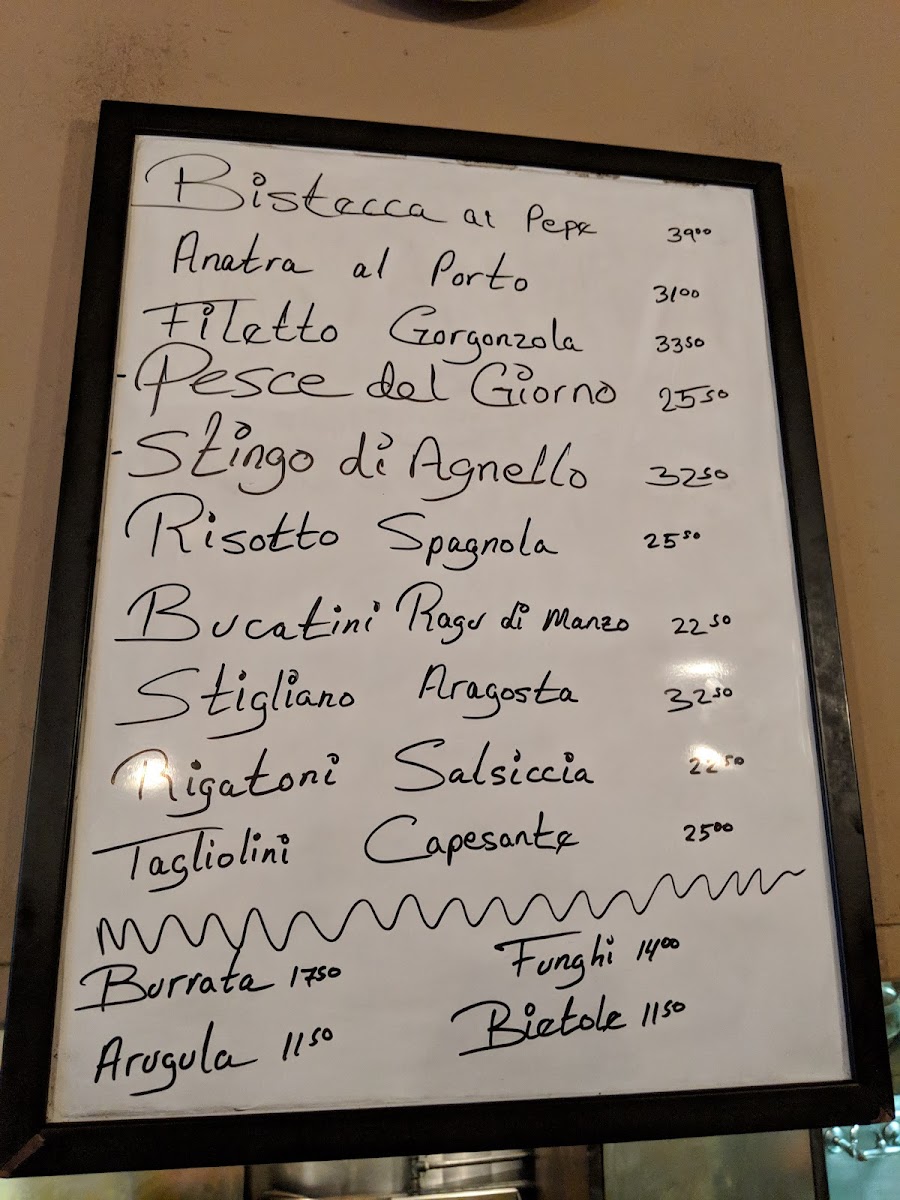 Bistecca al Pepe 39⁰⁰
Anatra al Porto 31⁰⁰
Filetto Gorgonzola 33⁵⁰
-Pesce del Giorno 25⁵⁰
-Stingo di Agnello 32⁵⁰
Risotto Spagnola 25⁵⁰
Bucatini Ragu di Manzo 22⁵⁰
Stigliano Aragosta 32⁵⁰
Rigatoni Salsiccia 22⁵⁰
Tagliolini Capesante 25⁰⁰
Burrata 17⁵⁰ Funghi 14⁰⁰
Arugula 11⁵⁰ Bietole 11⁵⁰